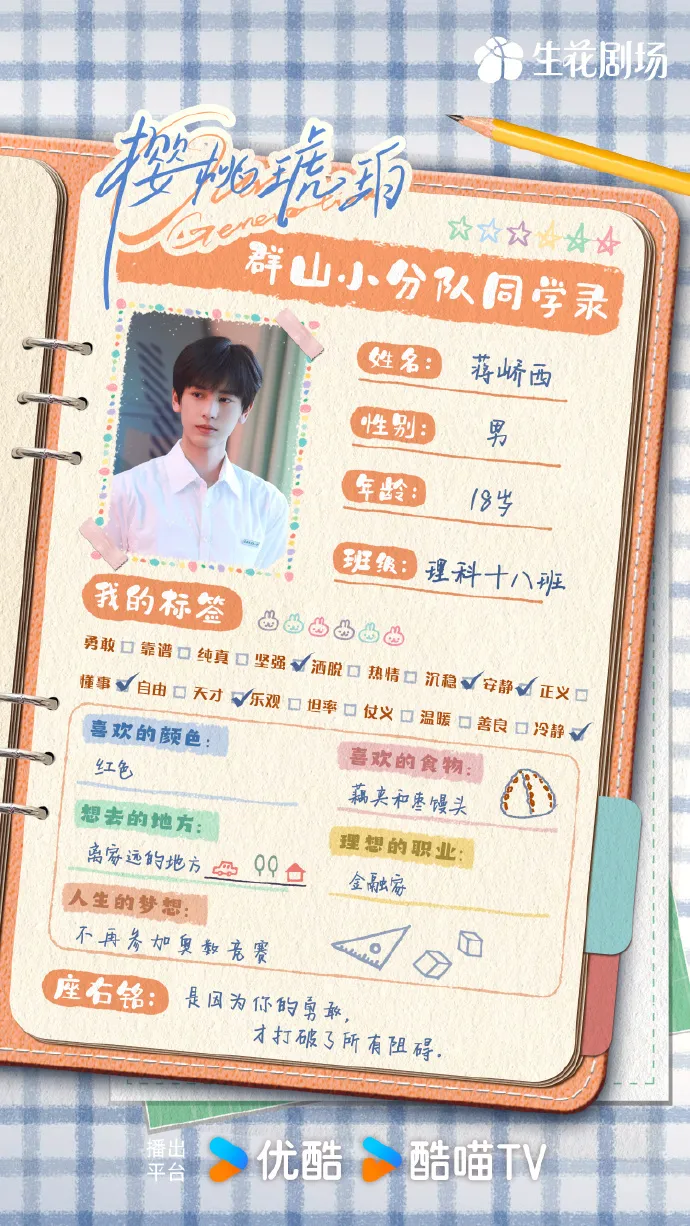 生花剧场
樱桃琥珀
群山小分队同学录
姓名：蒋峤西
性别：男
年龄：18岁
班级：理科十八班
我的标签
勇敢 靠谱 纯真 坚强 洒脱 热情 沉稳 安静 正义
懂事 自由 天才 乐观 坦率 仗义 温暖 善良 冷静
喜欢的颜色：
红色
喜欢的食物：
藕夹和枣馒头
想去的地方：
离家远的地方
理想的职业：
金融家
人生的梦想：
不再参加奥数竞赛
座右铭：是因为你的勇敢，
才打破了所有阻碍.
播出
平台
优酷 酷喵TV